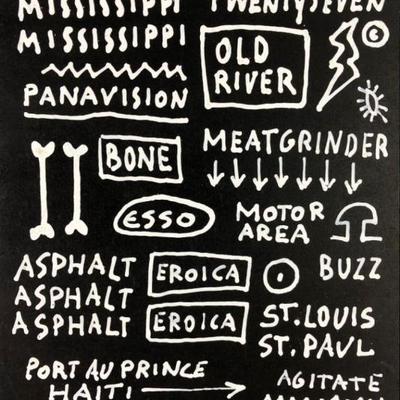 MISSISSIPPI
TWENTYSEVEN
MISSISSIPPI
OLD
RIVER
©
PANAVISION
BONE
MEATGRINDER
ESSO
MOTOR
AREA
ASPHALT
EROICA
BUZZ
ASPHALT
ASPHALT
EROICA
ST. LOUIS
ST. PAUL
PORT AU PRINCE
HAITI
AGITATE